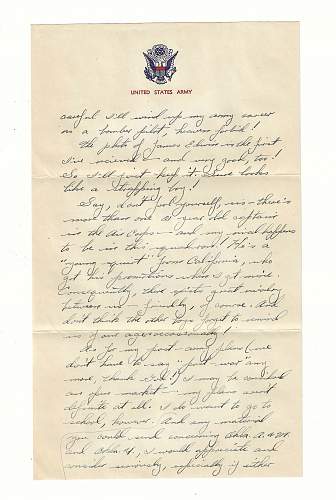 UNITED STATES ARMY
careful I'll wind up my army career
as a bomber pilot, heaven forbid!
The photo of James Elvin is the first
I've received — and very good, too!
So I'll just keep it. Sure looks
like a strapping boy!
Say, don't fool yourself, sis — there's
more than one year old captain
in the Air Corps — and my rival happens
to be in this squadron! He's a
"young squirt" from California, who
got his promotions when I got mine.
Consequently, there exists great rivalry
between us — friendly, of course. And
don't think the other boys forget to remind
us of our ages occasionally!
As to my post army plans (we
don't have to say "post-war" any
more, thank God!) I may be
my plans aren't
definite at all. I do want to go to
school, however. And any material
you could send concerning Okla. A. & M.
and Okla. U., I would appreciate and
consider seriously, especially if either